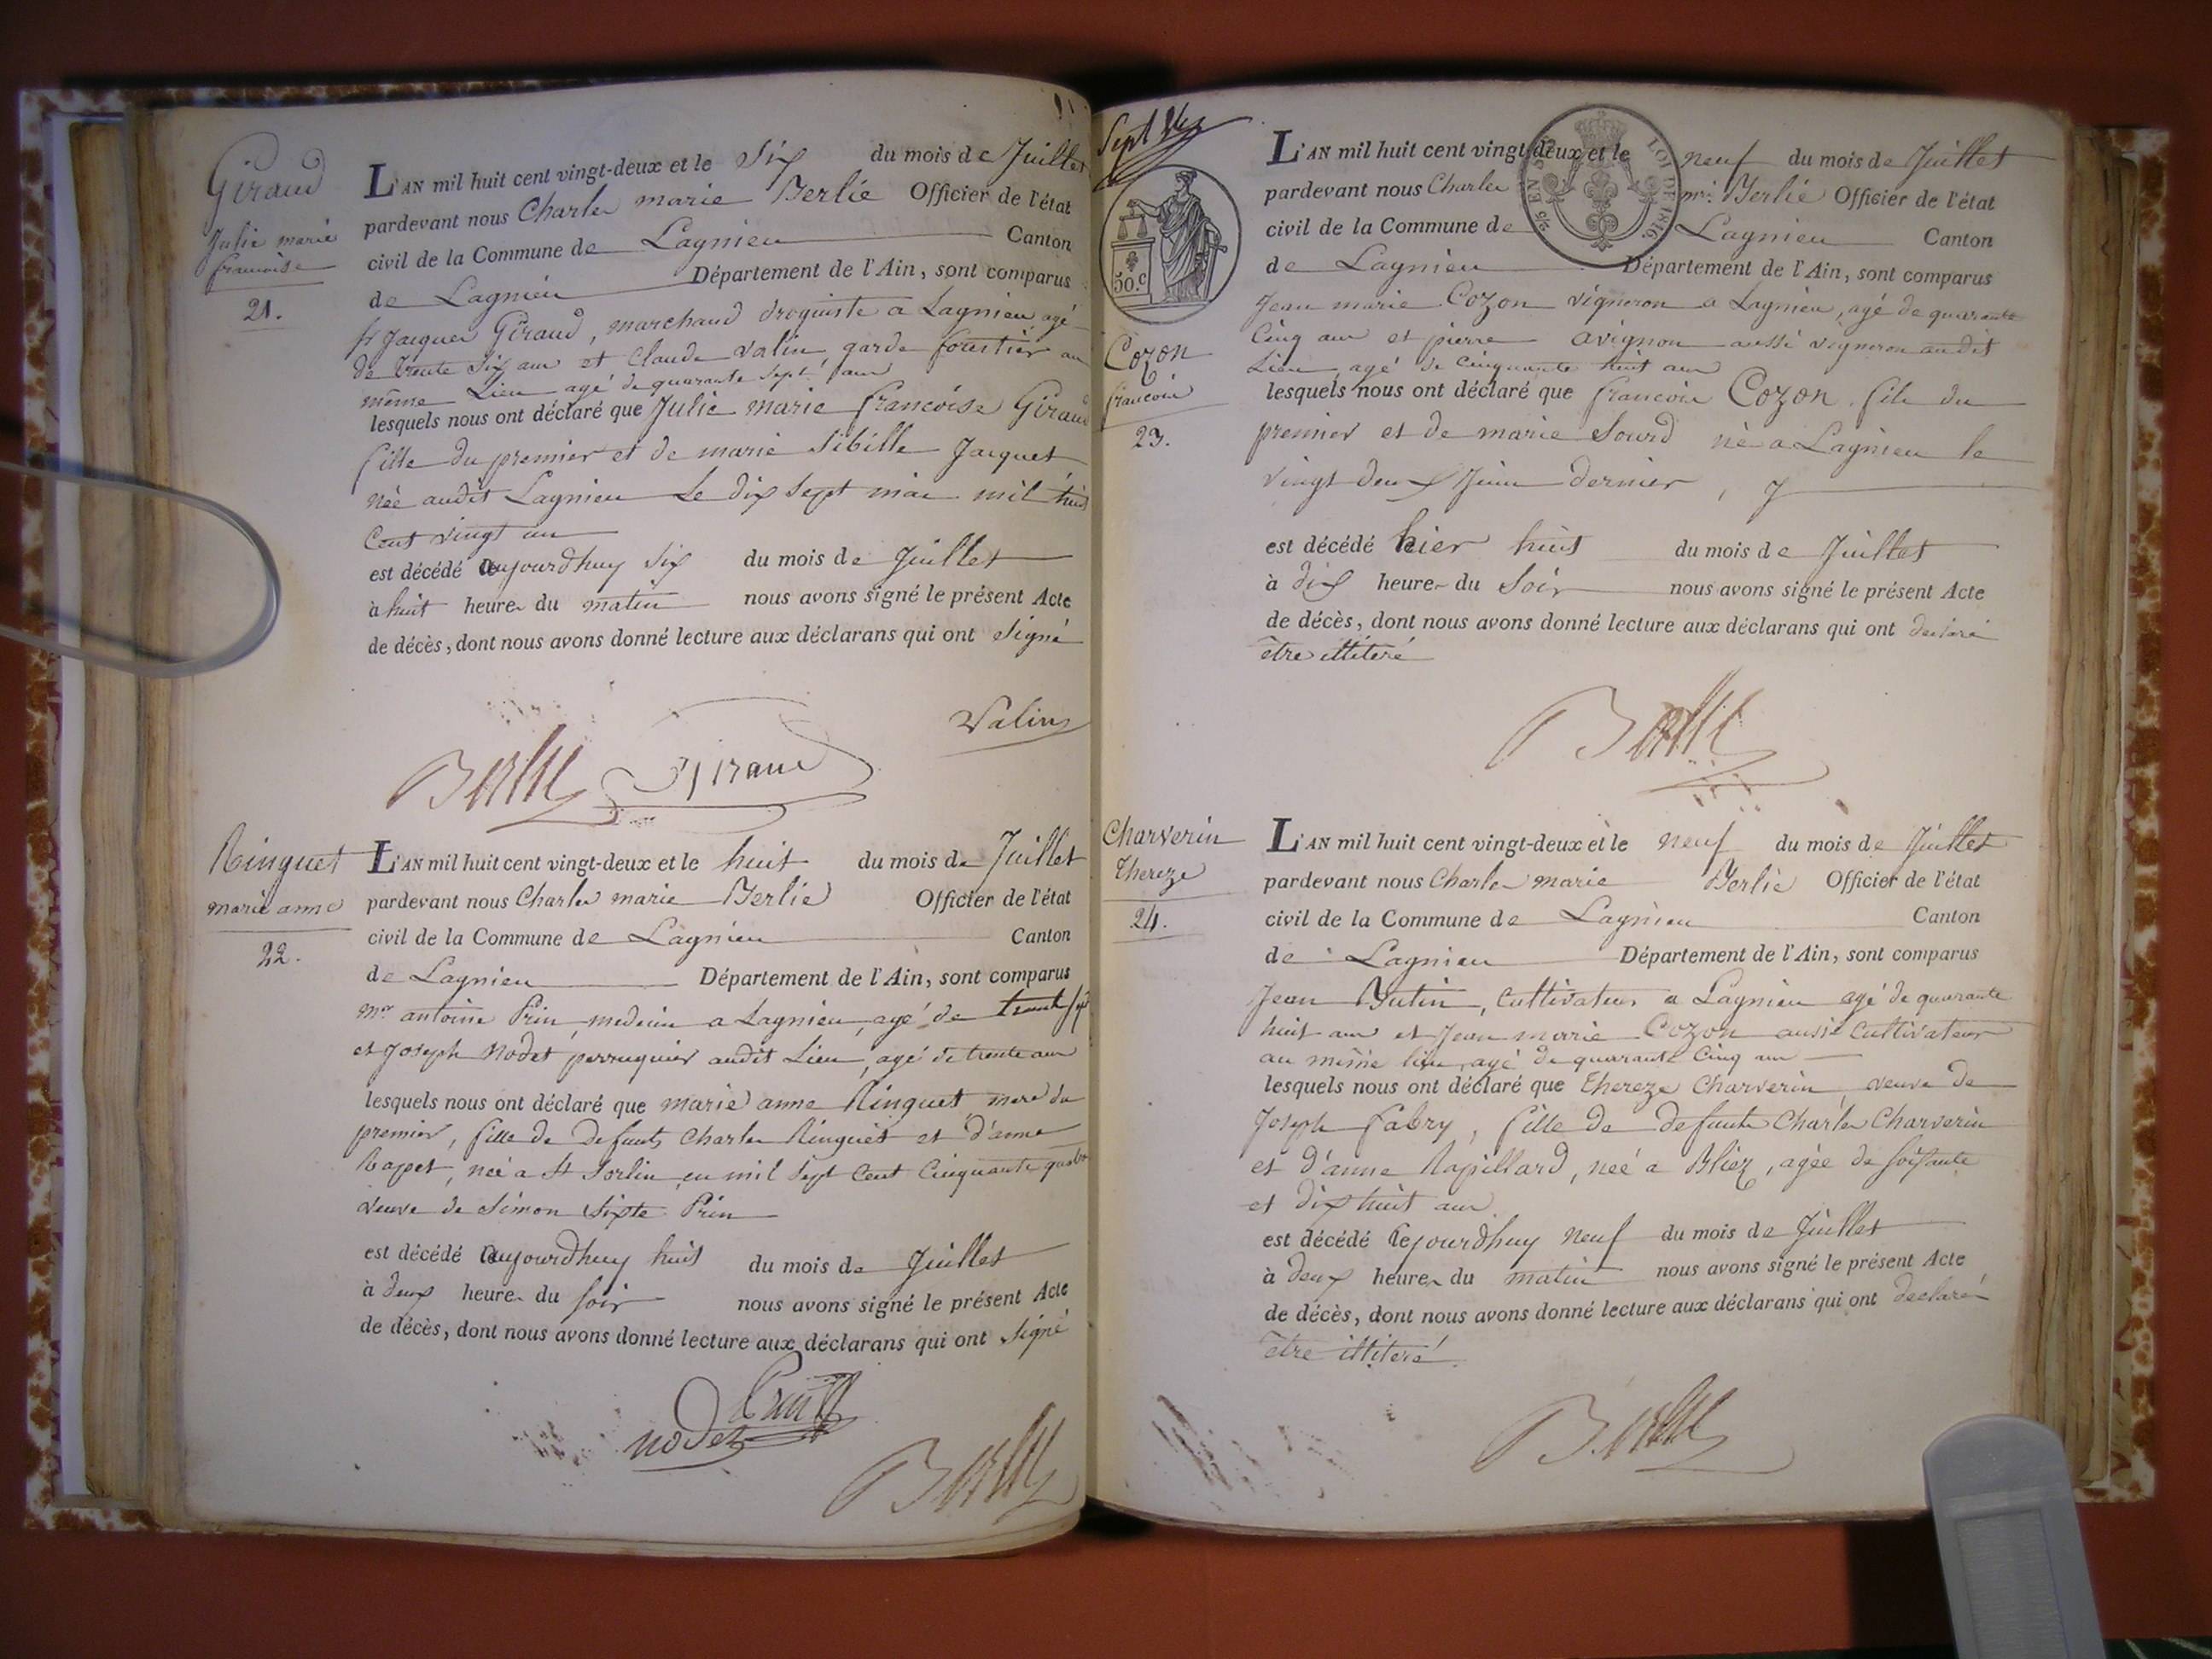 Giraud
Julie marie
francoise
21.
L'AN mil huit cent vingt-deux et le Six du mois de Juillet
pardevant nous Charles marie Berlié Officier de l'état
civil de la Commune de Lagnieu Canton
de Lagnieu Département de l'Ain, sont comparus
sr Jacques Giraud, marchand droguiste a Lagnieu, agé
de trente Six ans et Claude Valin, garde forestier au
même Lieu agé de quarante Sept ans
lesquels nous ont déclaré que Julie marie francoise Giraud
fille du premier et de marie Sibille Jacquet
née audit Lagnieu le dix Sept mai mil huit
Cent vingt un
est décédé aujourdhuy Six du mois de Juillet
à huit heures du matin nous avons signé le présent Acte
de décès, dont nous avons donné lecture aux déclarans qui ont Signé
Valin
Berlié Giraud
Ringuet
marie anne
22.
L'AN mil huit cent vingt-deux et le huit du mois de Juillet
pardevant nous Charles marie Berlié Officier de l'état
civil de la Commune de Lagnieu Canton
de Lagnieu Département de l'Ain, sont comparus
mr antoine Prin, medecin a Lagnieu, agé de trente
et Joseph Nodet perruquier audit Lieu, agé de trente ans
lesquels nous ont déclaré que marie anne Ringuet mere du
premier, fille de defunts Charles Ringuet et d'anne
Rapet, née a St Sorlin en mil Sept Cent Cinquante quatre
veuve de Simon Sixte Prin
est décédé aujourdhuy huit du mois de Juillet
à deux heures du soir nous avons signé le présent Acte
de décès, dont nous avons donné lecture aux déclarans qui ont Signé
Prin
nodet
Berlié
Sept
50.c
EN SUS LOI DE 1816.
Cozon
francois
23.
L'AN mil huit cent vingt-deux et le neuf du mois de Juillet
pardevant nous Charles mie Berlié Officier de l'état
civil de la Commune de Lagnieu Canton
de Lagnieu Département de l'Ain, sont comparus
Jean marie Cozon vigneron a Lagnieu, agé de quarante
Cinq ans et pierre avignon aussi vigneron audit
Lieu, agé de Cinquante huit ans
lesquels nous ont déclaré que francois Cozon, fils du
premier et de marie Sourd né a Lagnieu le
vingt deux Juin dernier,
est décédé hier huit du mois de Juillet
à dix heures du Soir nous avons signé le présent Acte
de décès, dont nous avons donné lecture aux déclarans qui ont declaré
être illiteré
Berlié
Charverin
Thereze
24.
L'AN mil huit cent vingt-deux et le neuf du mois de Juillet
pardevant nous Charles marie Berlié Officier de l'état
civil de la Commune de Lagnieu Canton
de Lagnieu Département de l'Ain, sont comparus
Jean Butin, Cultivateur a Lagnieu agé de quarante
huit ans et Jean marie Cozon aussi Cultivateur
au même lieu, agé de quarante Cinq ans
lesquels nous ont déclaré que Thereze Charverin, veuve de
Joseph fabry, fille de defunts Charles Charverin
et d'anne Rapillard, neé a Bliez, agée de soixante
et dix huit ans
est décédé cejourdhuy neuf du mois de Juillet
à deux heures du matin nous avons signé le présent Acte
de décès, dont nous avons donné lecture aux déclarans qui ont declaré
être illiteré
Berlié